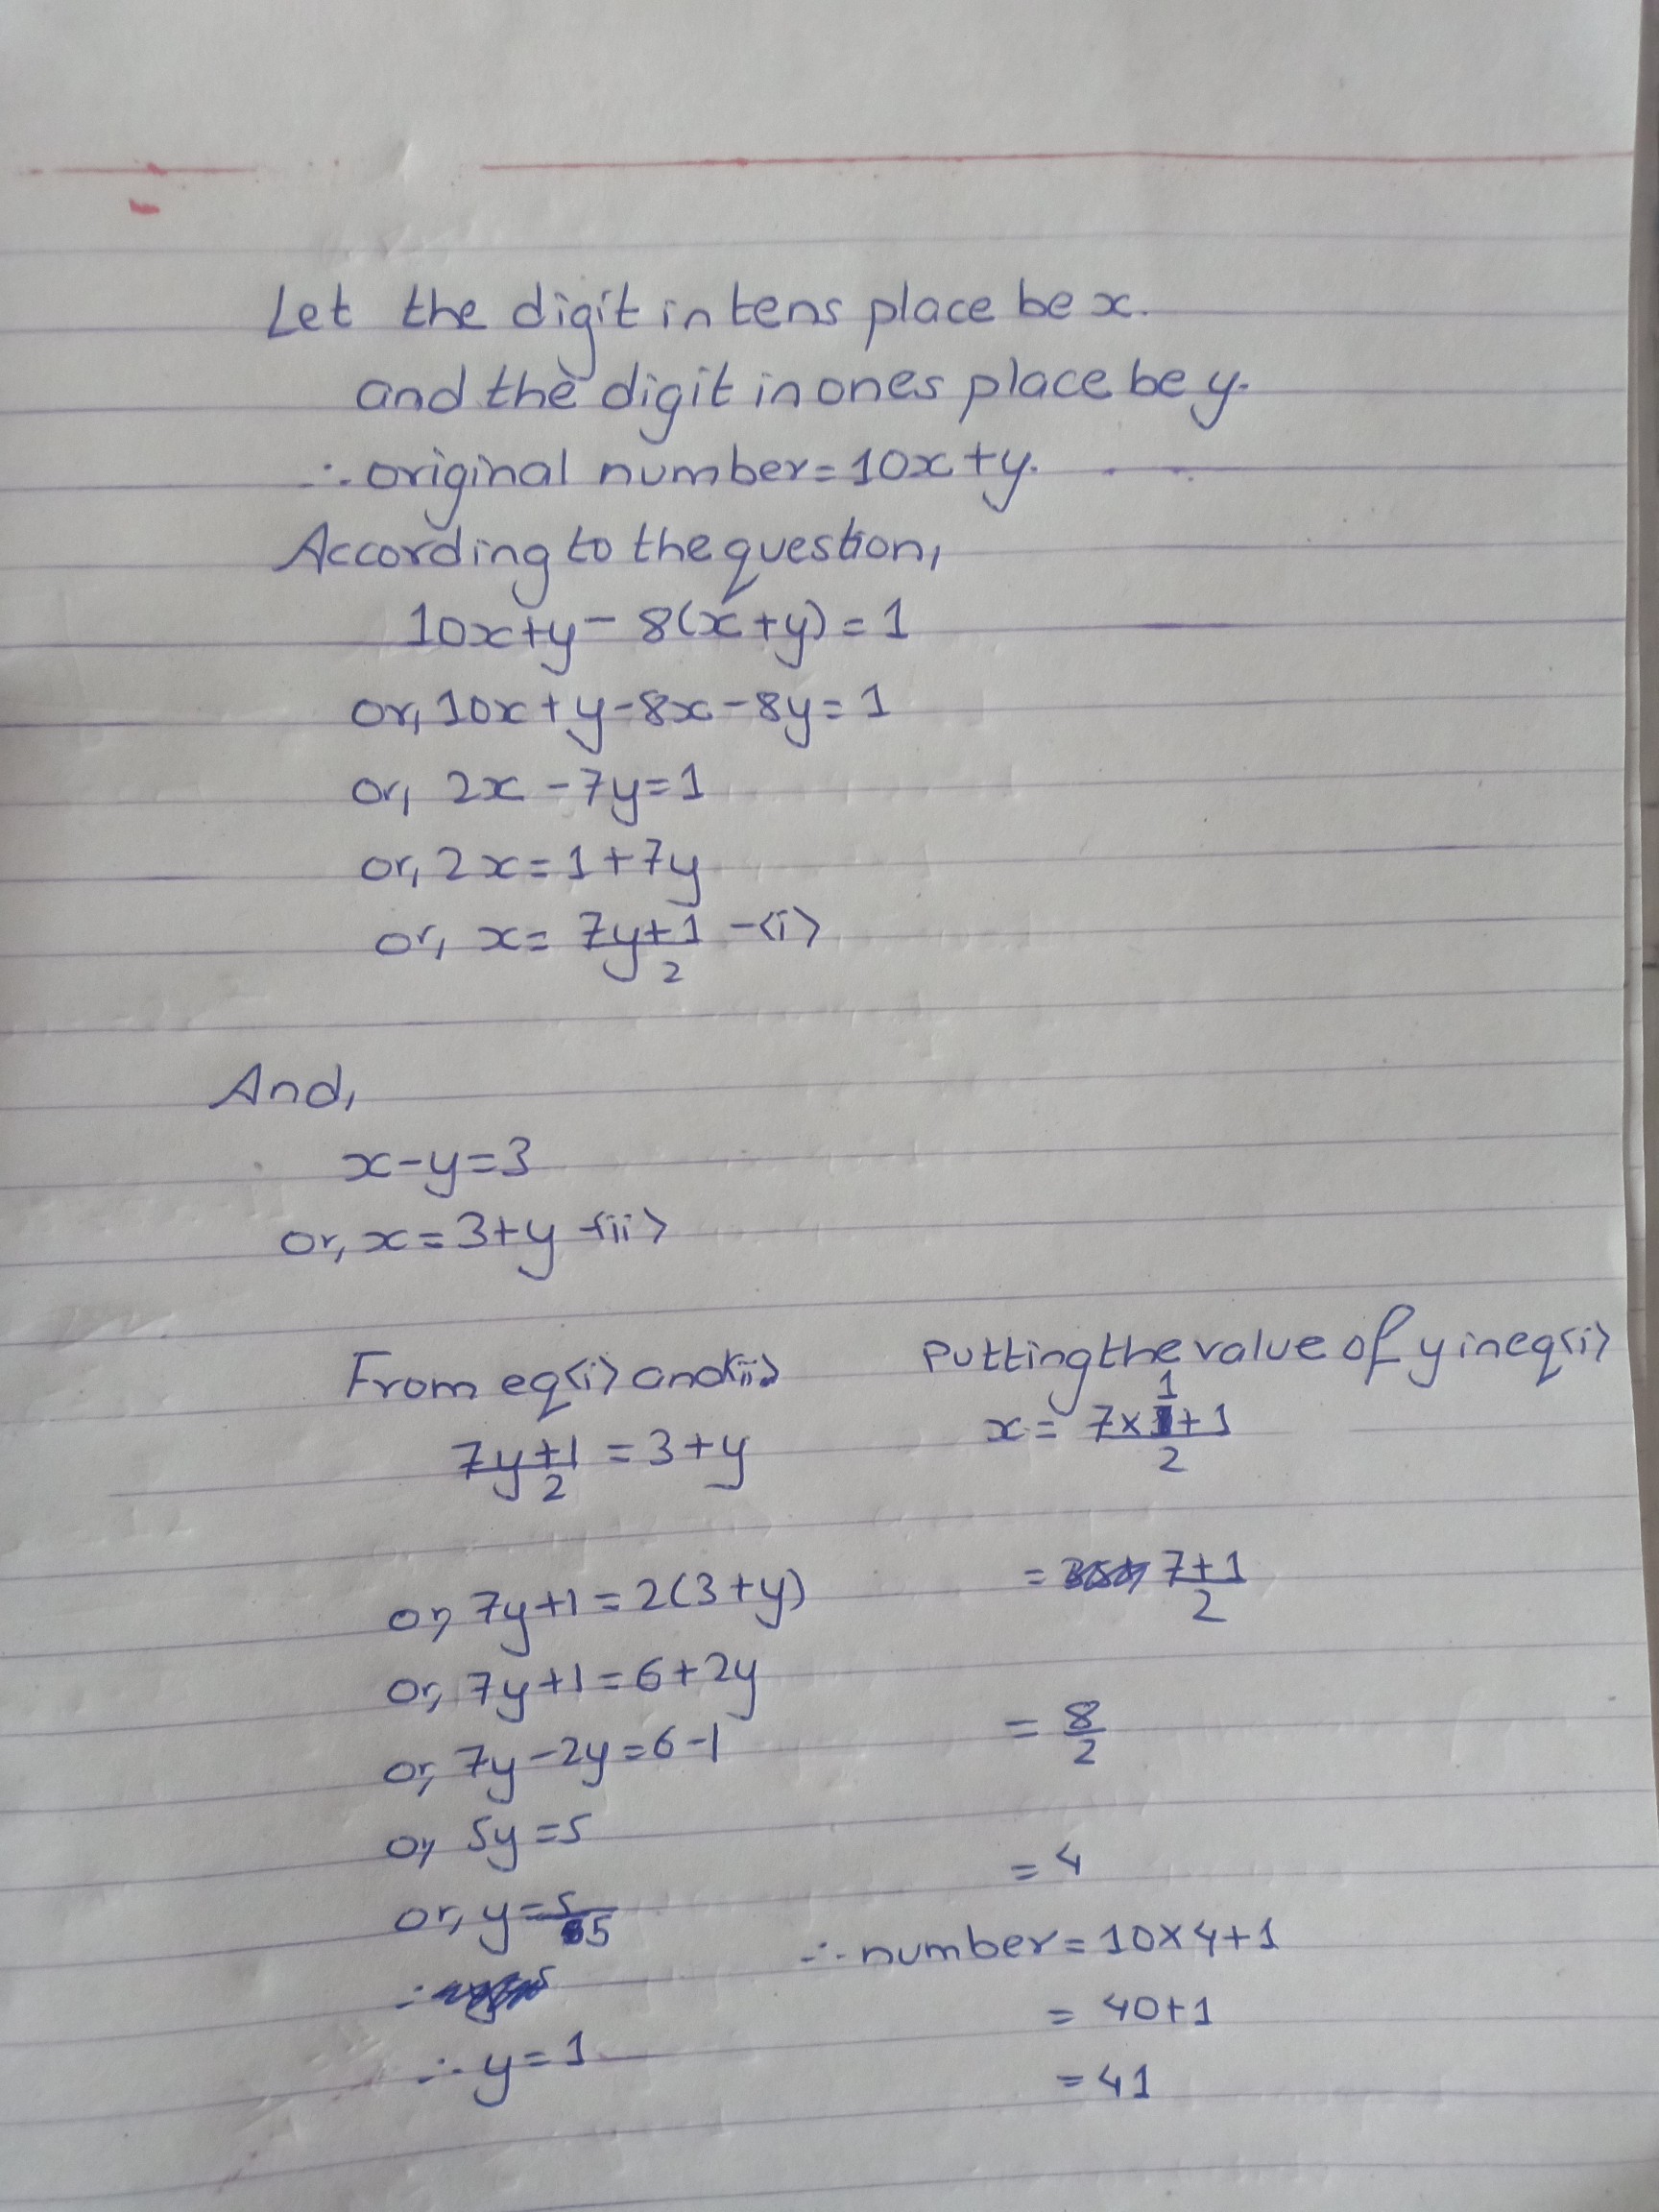 Let the digit in tens place be x.
and the digit in ones place be y.
∴ original number = 10x + y.
According to the question,
10x+y - 8(x+y) = 1
or, 10x + y - 8x - 8y = 1
or, 2x - 7y = 1
or, 2x = 1 + 7y
or, x = 7y+1/2 -<i>
And,
x - y = 3
or, x = 3+y -<ii>
From eq<i> and <ii>
7y+1/2 = 3+y
or, 7y+1 = 2(3+y)
or, 7y+1 = 6+2y
or, 7y-2y = 6-1
or, 5y = 5
or, y = 5/5
∴ y = 1
Putting the value of y in eq<i>
x = 7×1+1/2
= 7+1/2
= 8/2
= 4
∴ number = 10×4+1
= 40+1
= 41